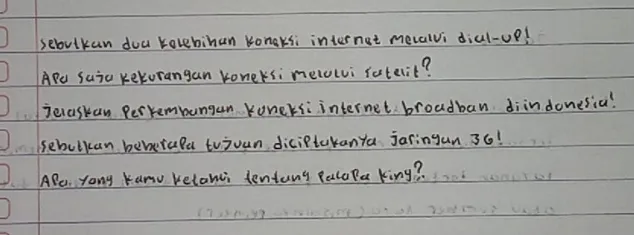 sebutkan dua kelebihan koneksi internet melalui dial-up!
Apa saja kekurangan koneksi melalui satelit?
Jelaskan perkembangan koneksi internet broadban diindonesia!
sebutkan beberapa tujuan diciptakanya jaringan 3G!
Apa yang kamu ketahui tentang palapa king?